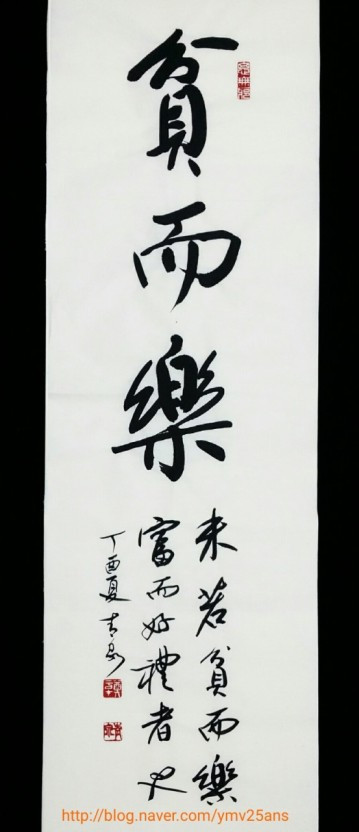 貧而樂
未若貧而樂
富而好禮者也
丁酉夏
http://blog.naver.com/ymv25ans